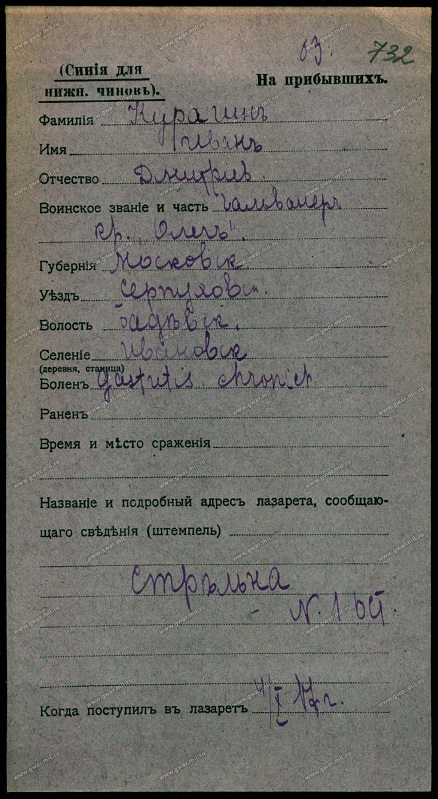 03. 732
(Синія для
нижн. чиновъ).
На прибывшихъ.
Фамилія Курагинъ
Имя Иванъ
Отчество Дмитріев.
Воинское званіе и часть гальванеръ
кр. "Олегъ".
Губернія Московск
Уѣздъ Серпуховск.
Волость Бадѣевск.
Селеніе Ивановск
(деревня, станица)
Боленъ gastritis chronic
Раненъ
Время и мѣсто сраженія
Названіе и подробный адресъ лазарета, сообщаю-
щаго свѣдѣнія (штемпель)
Стрѣльна
N. 1
Когда поступилъ въ лазаретъ 4/X 17 г.
www.gwar.mil.ru